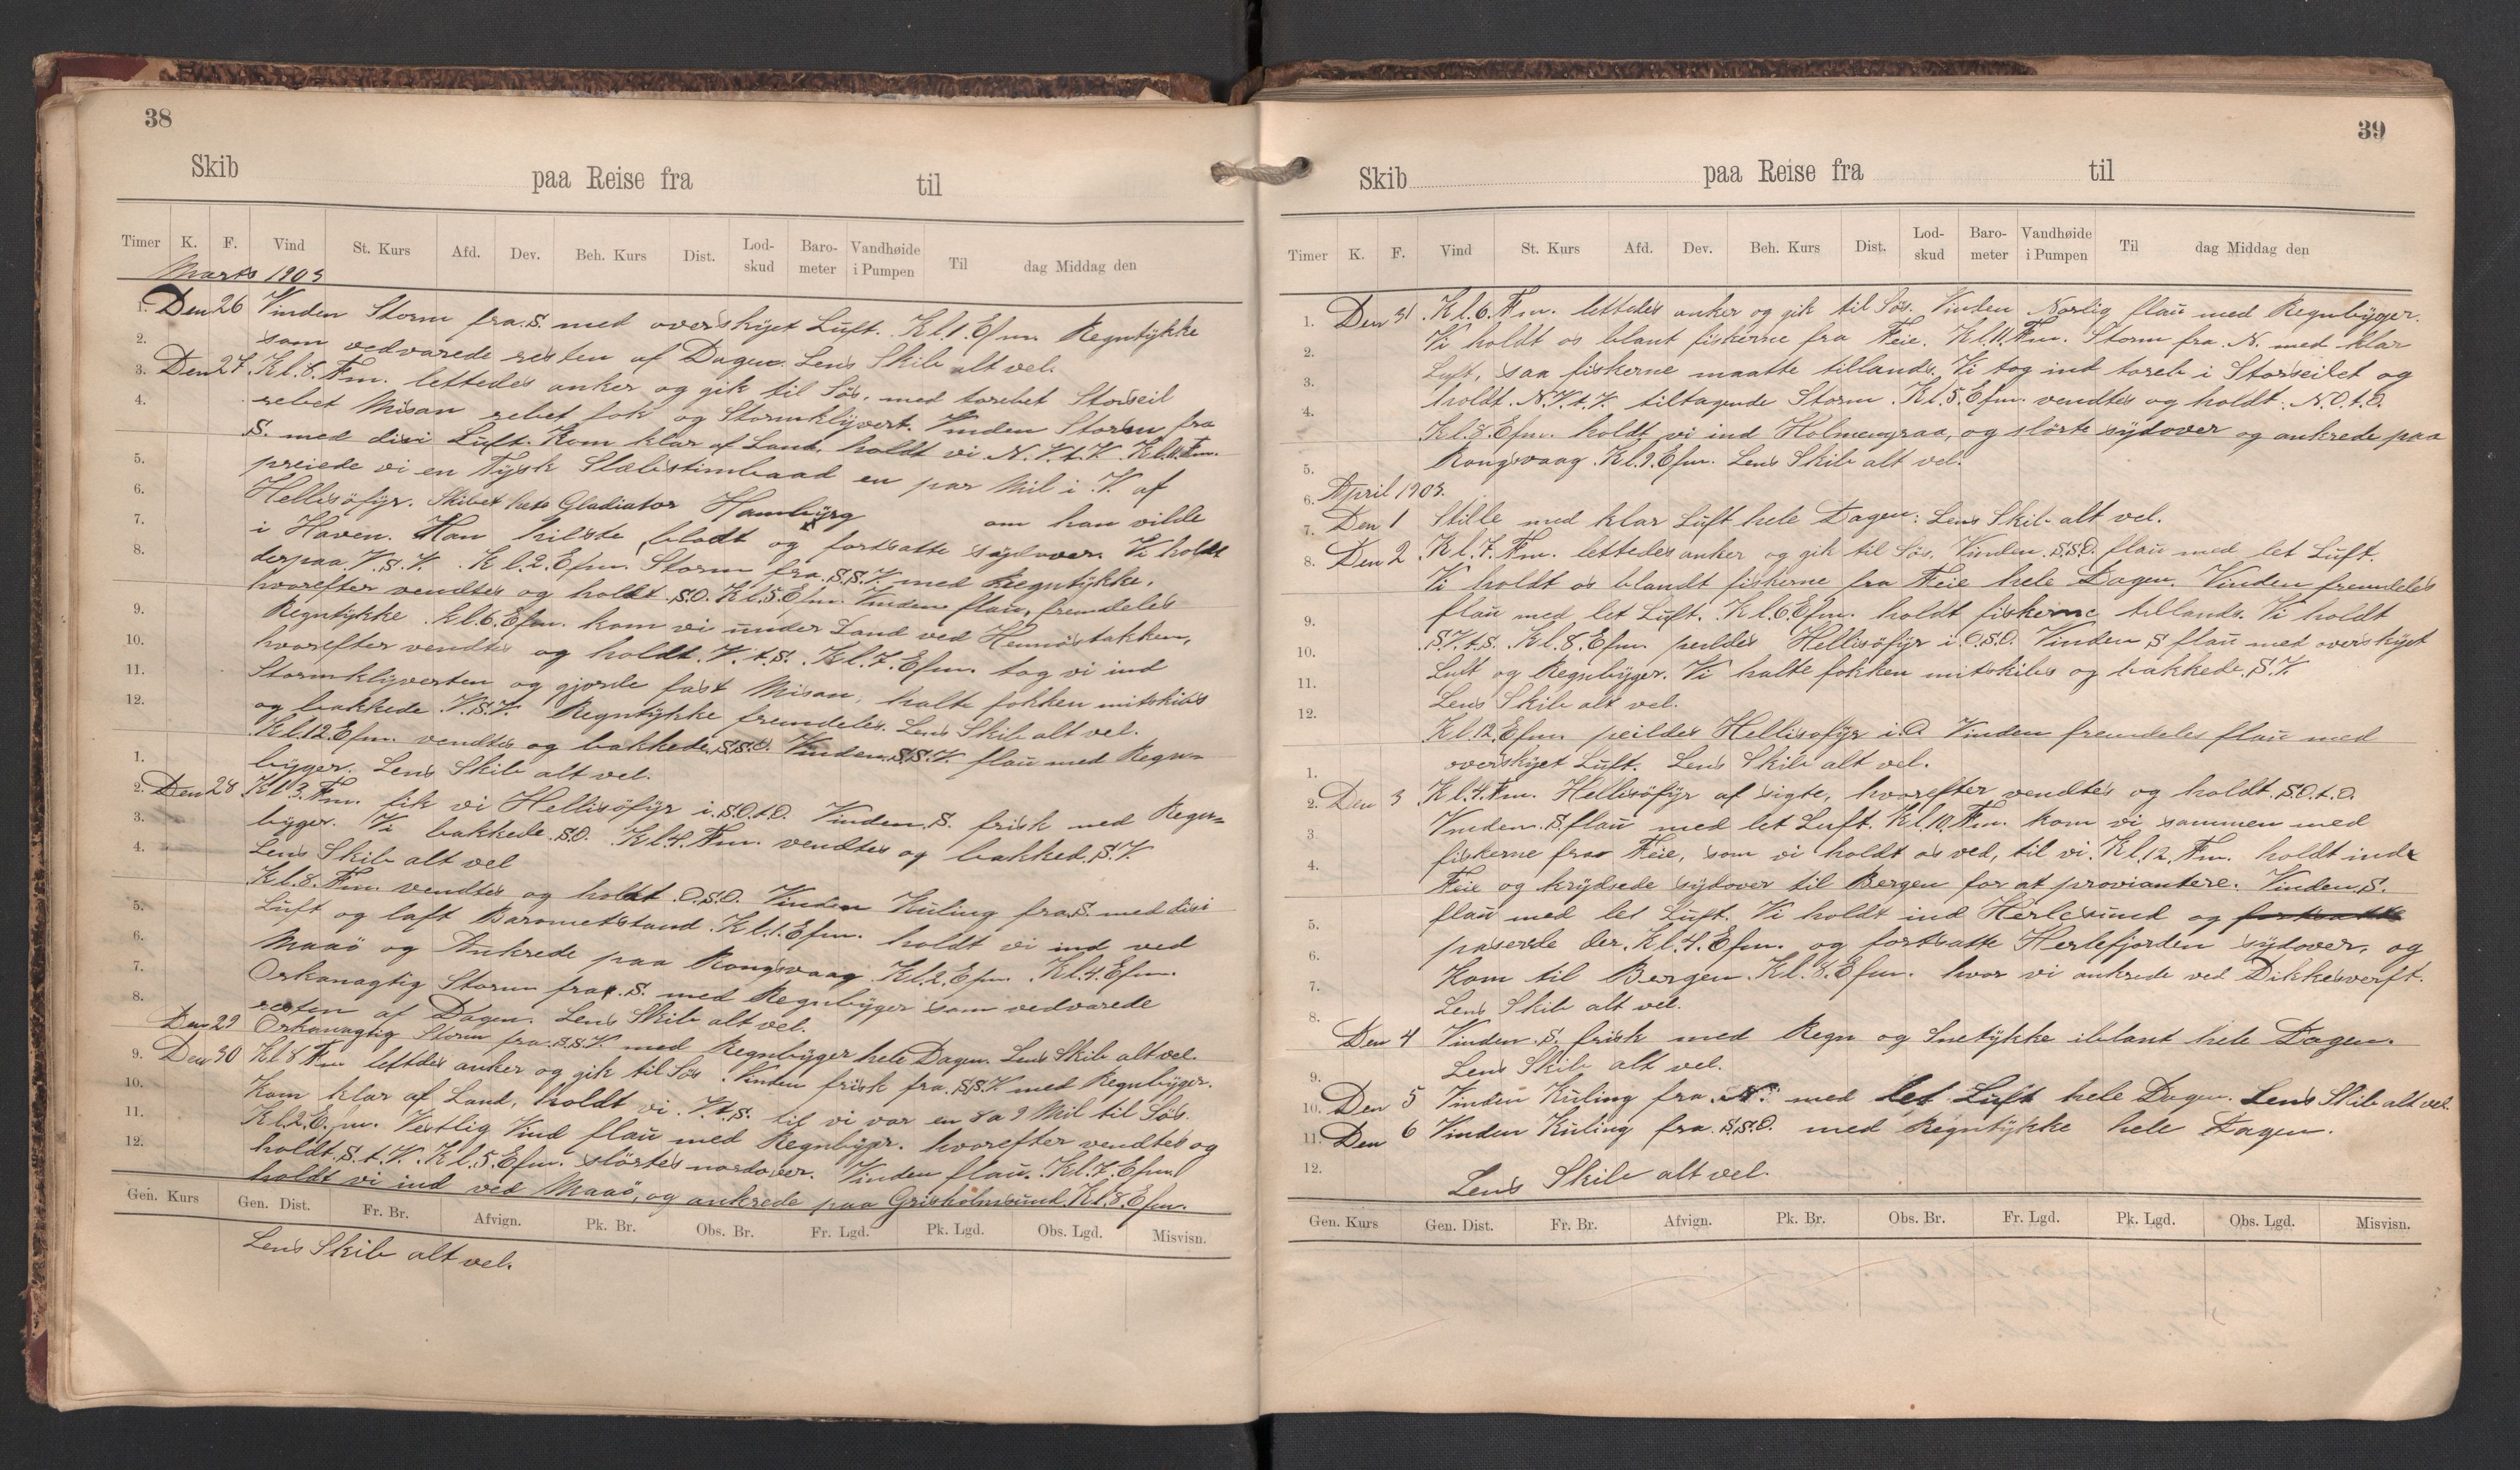 38
Skib paa Reise fra til
Timer K. F. Vind St. Kurs Afd. Dev. Beh. Kurs Dist. Lod-skud Baro-meter Vandhøide i Pumpen Til dag Middag den
Marts 1903
1. Den 26 Vinden Storm fra S. med overskyet Luft. Kl. 1. Efm. Regntykke
2. som vedvarede resten af Dagen. Lens Skib alt vel.
3. Den 27. Kl. 8. Fm. lettedes anker og gik til Søs, med torebet Storseil
4. rebet Misan rebet fok og Stormklyvert. Vinden Storm fra
S. med disi Luft. Kom klar af Land, holdt vi N.V.t.V. Kl. 11. Fm.
5. preiede vi en Tysk Slæbstimbaad en par Mil i V. af
6. Hellisöfyr. Skibet hets Gladiator Hamburg om han vilde
7. i Haven. Han hilste blodt og fortsatte sydover. Vi holdt
8. derpaa V.S.V. Kl. 2. Efm. Storm fra S.S.V. med Regntykke,
hvorefter vendtes og holdt S.O. Kl. 5. Efm. Vinden flau, fremdeles
9. Regntykke. Kl. 6. Efm. kom vi under Land ved Hennöstakken,
10. hvorefter vendtes og holdt V.t.S. Kl. 7. Efm. tog vi ind
11. Stormklyverten og gjorde fast Misan, halte fokken mitskibs
12. og bakkede V.S.V. Regntykke fremdeles. Lens Skib alt vel.
Kl. 12. Efm. vendtes og bakkede S.S.O. Vinden S.S.V. flau med Regn=
1. byger. Lens Skib alt vel.
2. Den 28 Kl. 3. Fm. fik vi Hellisöfyr i S.O.t.O. Vinden S. frisk med Regn=
3. byger. Vi bakkede S.O. Kl. 4. Fm. vendtes og bakked S.V.
4. Lens Skib alt vel
Kl. 8. Fm. vendtes og holdt O.S.O. Vinden Kuling fra S. med disi
5. Luft og laft Barometstand. Kl. 1. Efm. holdt vi ind ved
6. Maaö og Ankrede paa Rongsvaag Kl. 2. Efm. Kl. 4 Efm.
7. Orkanagtig Storm fra S. med Regnbyger som vedvarede
8. resten af Dagen. Lens Skib alt vel.
Den 29 Orkanagtig Storm fra S.S.V. med Regnbyger hele Dagen. Lens Skib alt vel.
9. Den 30 Kl. 8 Fm lettdes anker og gik til Søs. Vinden frisk fra S.S.V. med Regnbyger.
10. Kom klar af Land, holdt vi V.t.S. til vi var en 8 a 9 Mil til Søs.
11. Kl. 2. E.fm. Vestlig Vind flau med Regnbyger. hvorefter vendtes og
12. holdt S.t.V. Kl. 5. Efm. slörtes nordover. Vinden flau. Kl. 7. Efm.
holdt vi ind ved Maaö, og ankrede paa Grisholmsund Kl. 8. Efm.
Gen. Kurs Gen. Dist. Fr. Br. Afvign. Pk. Br. Obs. Br. Fr. Lgd. Pk. Lgd. Obs. Lgd. Misvisn.
Lens Skib alt vel.
39
Skib paa Reise fra til
Timer K. F. Vind St. Kurs Afd. Dev. Beh. Kurs Dist. Lod-skud Baro-meter Vandhøide i Pumpen Til dag Middag den
1. Den 31. Kl. 6. Fm. lettedes anker og gik til Søs. Vinden Norlig flau med Regnbyger.
2. Vi holdt os blant fiskerne fra Feie. Kl. 11. Fm. Storm fra N. med klar
3. Luft, saa fiskerne maatte tillands. Vi tog ind toreb i Storseilet og
4. holdt N.V.t.V. tiltagende Storm. Kl. 5. Efm. vendtes og holdt N.O.t.O.
Kl. 8. Efm. holdt vi ind Holmengraa, og slörte sydover og ankrede paa
5. Rongsvaag Kl. 9. Efm. Lens Skib alt vel.
6. April 1903.
7. Den 1 Stille med klar Luft hele Dagen. Lens Skib alt vel.
8. Den 2 Kl. 7. Fm. lettedes anker og gik til Søs. Vinden S.S.O. flau med let Luft.
Vi holdt os blandt fiskerne fra Feie hele Dagen. Vinden fremdeles
9. flau med let Luft. Kl. 6 Efm. holdt fiskerne tillands. Vi holdt
10. S.V.t.S. Kl. 8. Efm. peildes Hellisöfyr i O.S.O. Vinden S flau med overskyet
11. Luft og Regnbyger. Vi halte fokken mitskibs og bakkede S.V.
12. Lens Skib alt vel.
Kl. 12. Efm. peildes Hellisofyr i O Vinden fremdeles flau med
1. overskyet Luft. Lens Skib alt vel.
2. Den 3 Kl. 4. Fm. Hellisöfyr af sigte, hvorefter vendtes og holdt S.O.t.O.
3. Vinden S. flau med let Luft. Kl. 10. Fm. kom vi sammen med
4. fiskerne fra Feie, som vi holdt os ved, til vi Kl. 12. Fm. holdt ind
Feie og krydsede sydover til Bergen for at proviantere. Vinden S.
5. flau med let Luft. Vi holdt ind Herlesund og fortsatte
6. paserede der Kl. 4. Efm. og fortsatte Herlefjorden sydover, og
7. Kom til Bergen Kl. 8. Efm. hvor vi ankrede ved Dikkesverft.
8. Lens Skib alt vel.
Den 4 Vinden S. frisk med Regn og Snetykke iblant hele Dagen.
9. Lens Skib alt vel.
10. Den 5 Vinden Kuling fra N. med let Luft hele Dagen. Lens Skib alt vel.
11. Den 6 Vinden Kuling fra S.S.O. med Regntykke hele Dagen.
12. Lens Skib alt vel.
Gen. Kurs Gen. Dist. Fr. Br. Afvign. Pk. Br. Obs. Br. Fr. Lgd. Pk. Lgd. Obs. Lgd. Misvisn.